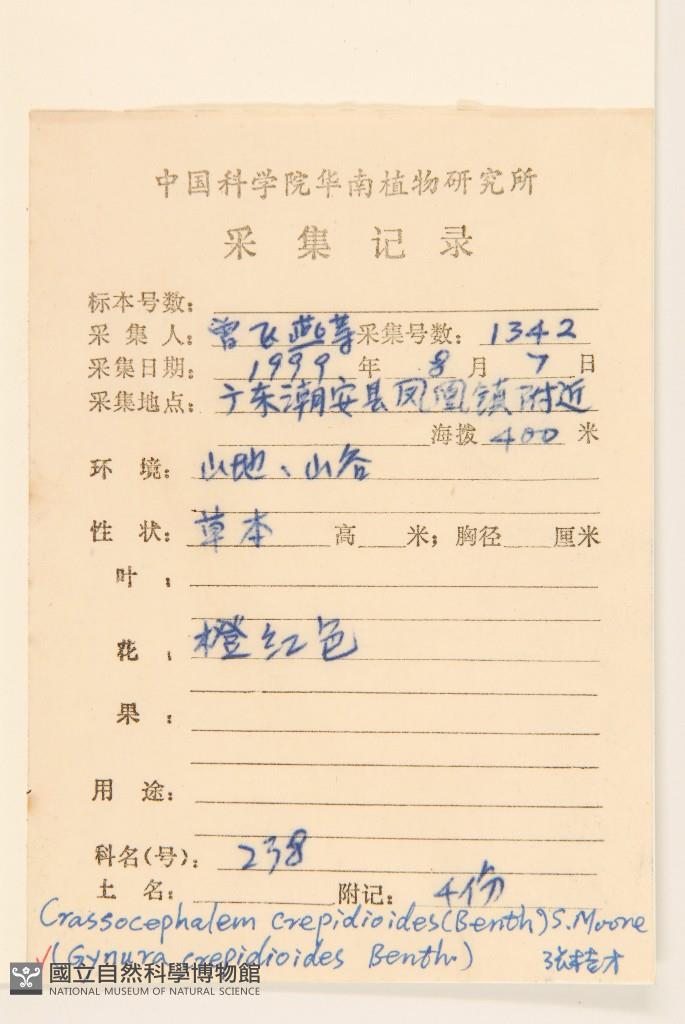 中国科学院华南植物研究所
采集记录
标本号数:
采集人: 曾飞燕等 采集号数: 1342
采集日期: 1999 年 8 月 7 日
采集地点: 广东潮安县凤凰镇附近
海拨 400 米
环境: 山地、山谷
性状: 草本 高 米; 胸径 厘米
叶:
花: 橙红色
果:
用途:
科名(号): 238
土名: 附记: 4份
Crassocephalem crepidioides (Benth) S. Moore
√(Gynura crepidioides Benth.) 张桂才
國立自然科學博物館
NATIONAL MUSEUM OF NATURAL SCIENCE